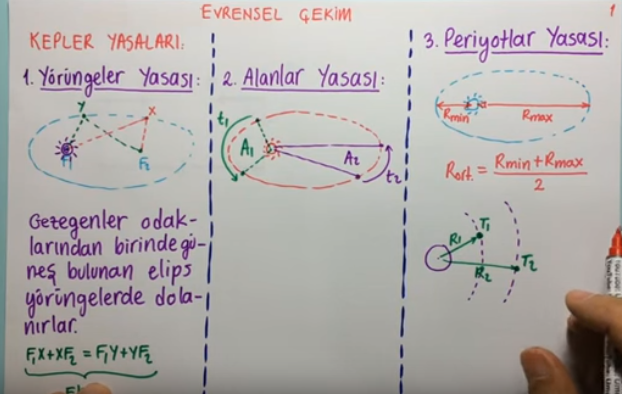 EVRENSEL ÇEKİM
1
KEPLER YASALARI:
1. Yörüngeler Yasası:
Y
X
F1
F2
Gezegenler odak-
larından birinde gü-
neş bulunan elips
yörüngelerde dola-
nırlar.
F1X+XF2 = F1Y+YF2
2. Alanlar Yasası:
t1
A1
A2
t2
3. Periyotlar Yasası:
Rmin
Rmax
Rort. = Rmin+Rmax
2
R1
T1
R2
T2